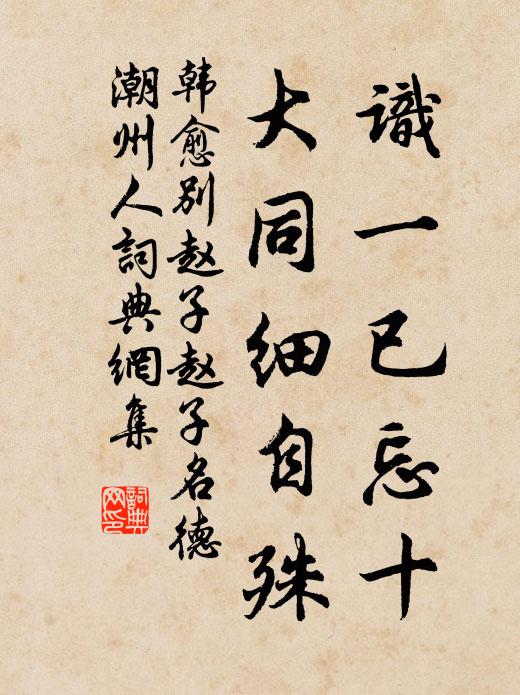 識一已忘十
大同细自殊
韩愈别赵子赵子名德
潮州人詞典網集
詞典
网印